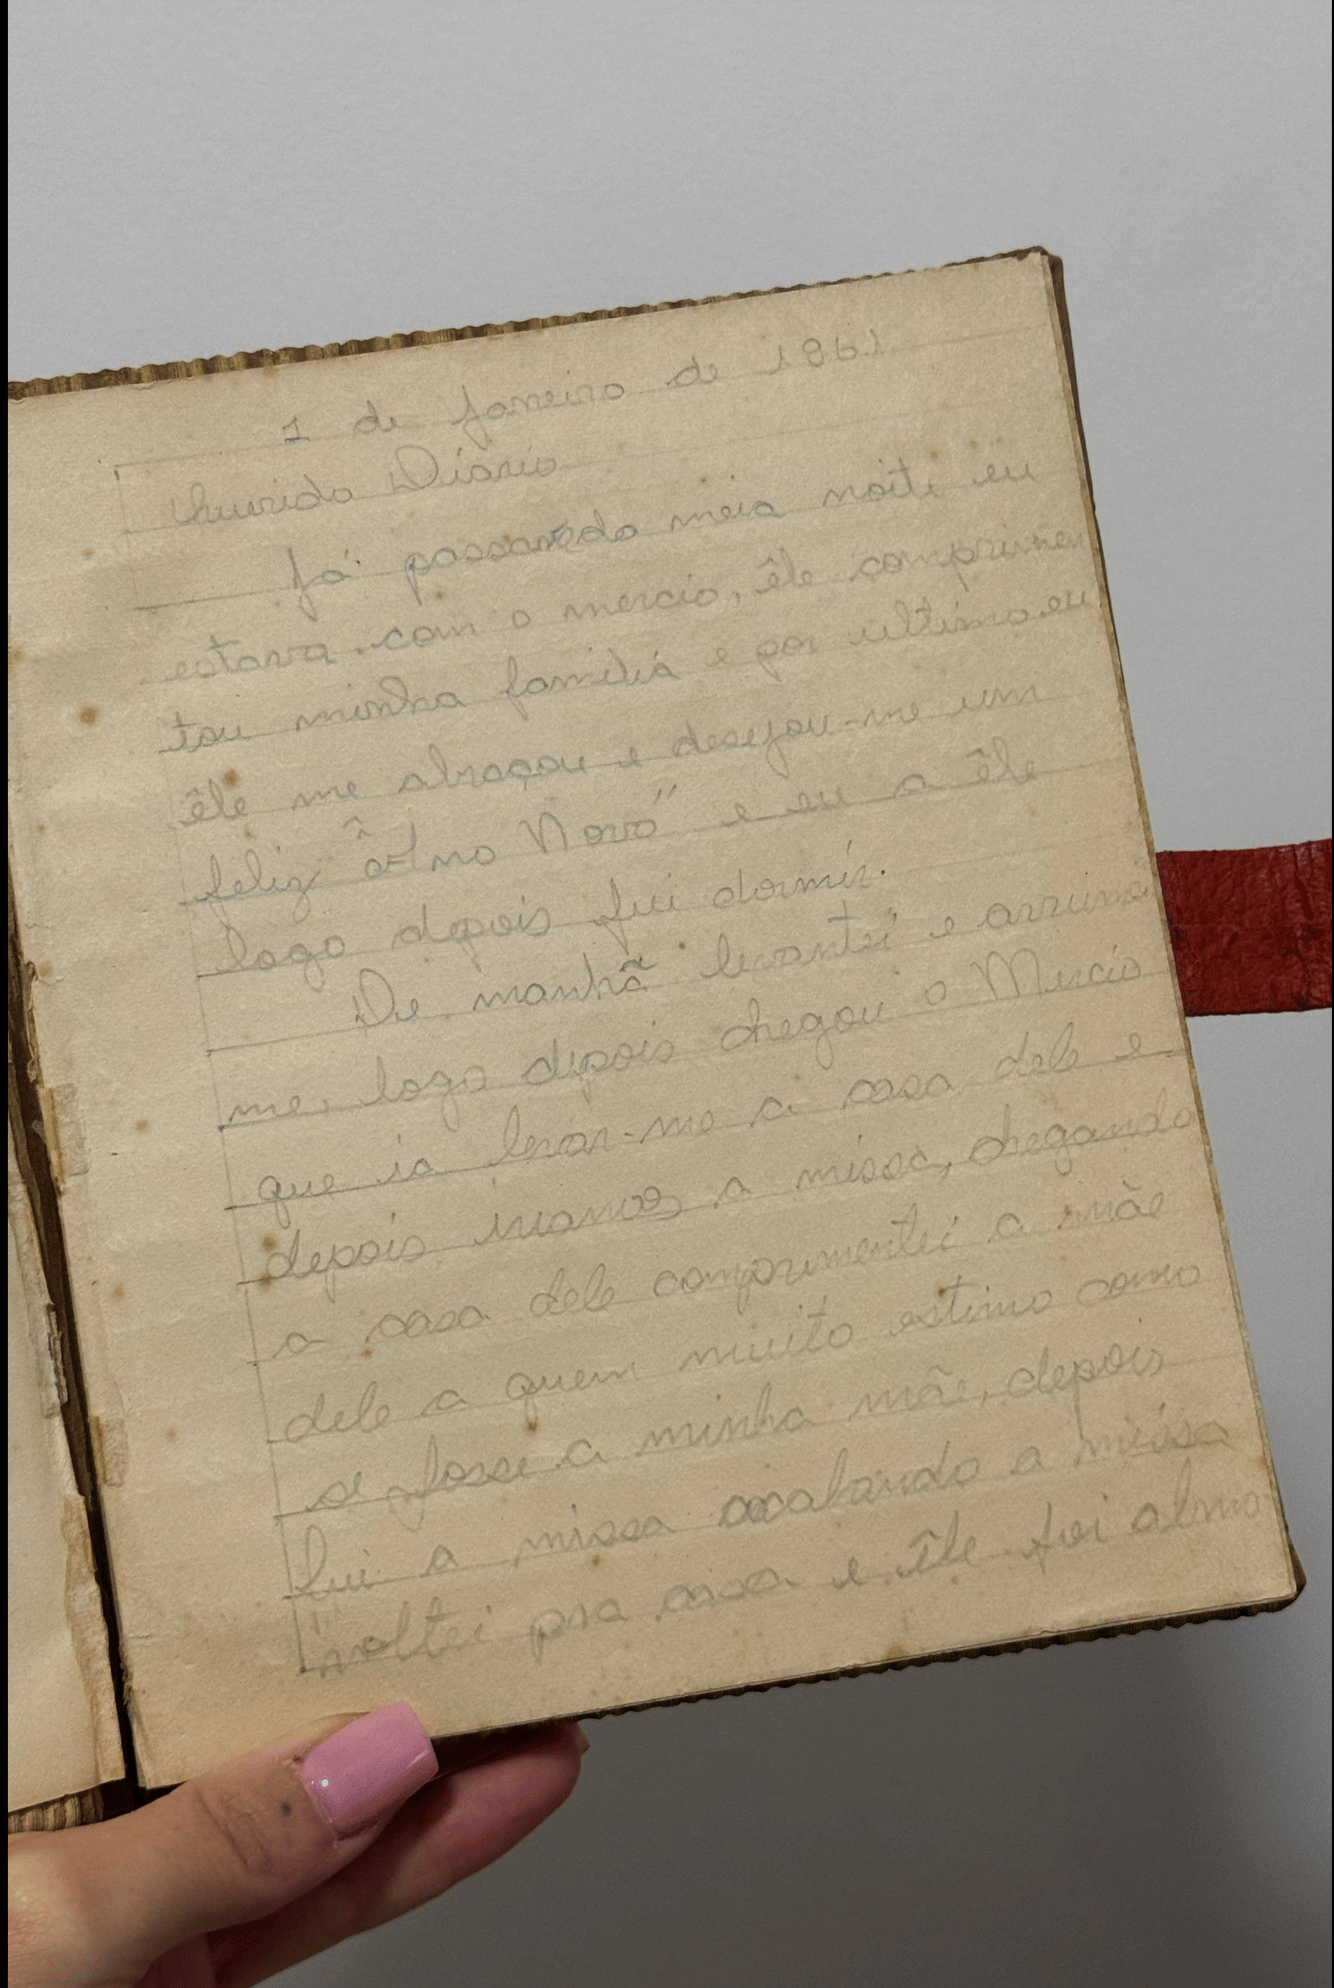 1 de Janeiro de 1961
Querido Diário
Já passando meia noite eu
estava com o mercio, êle comprimen
tou minha familia e por ultimo eu
êle me abraçou e desejou-me um
feliz "Ano Novo" e eu a êle
logo depois fui dormir.
De manhã levantei e arrumei
me, logo depois chegou o Mercio
que ia levar-me a casa dele e
depois iriamos a missa, chegando
a casa dele comprimentei a mãe
dele a quem muito estimo como
se fosse a minha mãe, depois
fui a missa acabando a missa
voltei pra casa e êle foi almo